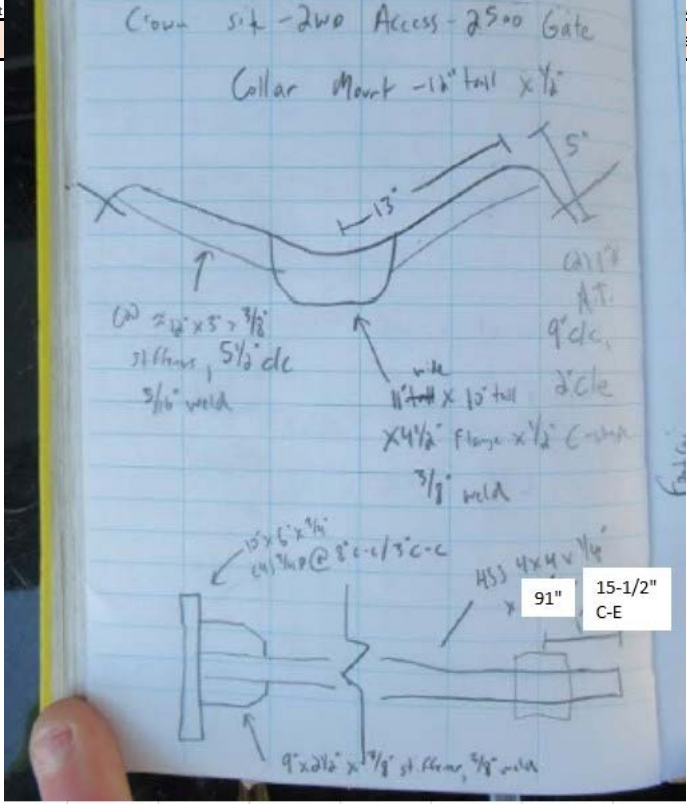 Crown Site - 2WD Access - 2500 Gate
Collar Mount - 12" tall x 1/2"
13"
5"
(2) 1" Ø
A.T.
9" c/c,
2" c/e
(2) ≈ 12" x 3" x 3/8"
stiffeners, 5 1/2" c/c
3/16" weld
wide
11" tall x 10" tall
x 4 1/2" Flange x 1/2" C-shape
3/8" weld
x 6" x 3/4"
(4) 3/4 Ø @ 8" c-c / 3" c-c
HSS 4x4 x 1/4"
x
91"
15-1/2"
C-E
9" x 2 1/2" x 3/8" stiffeners, 3/8" weld